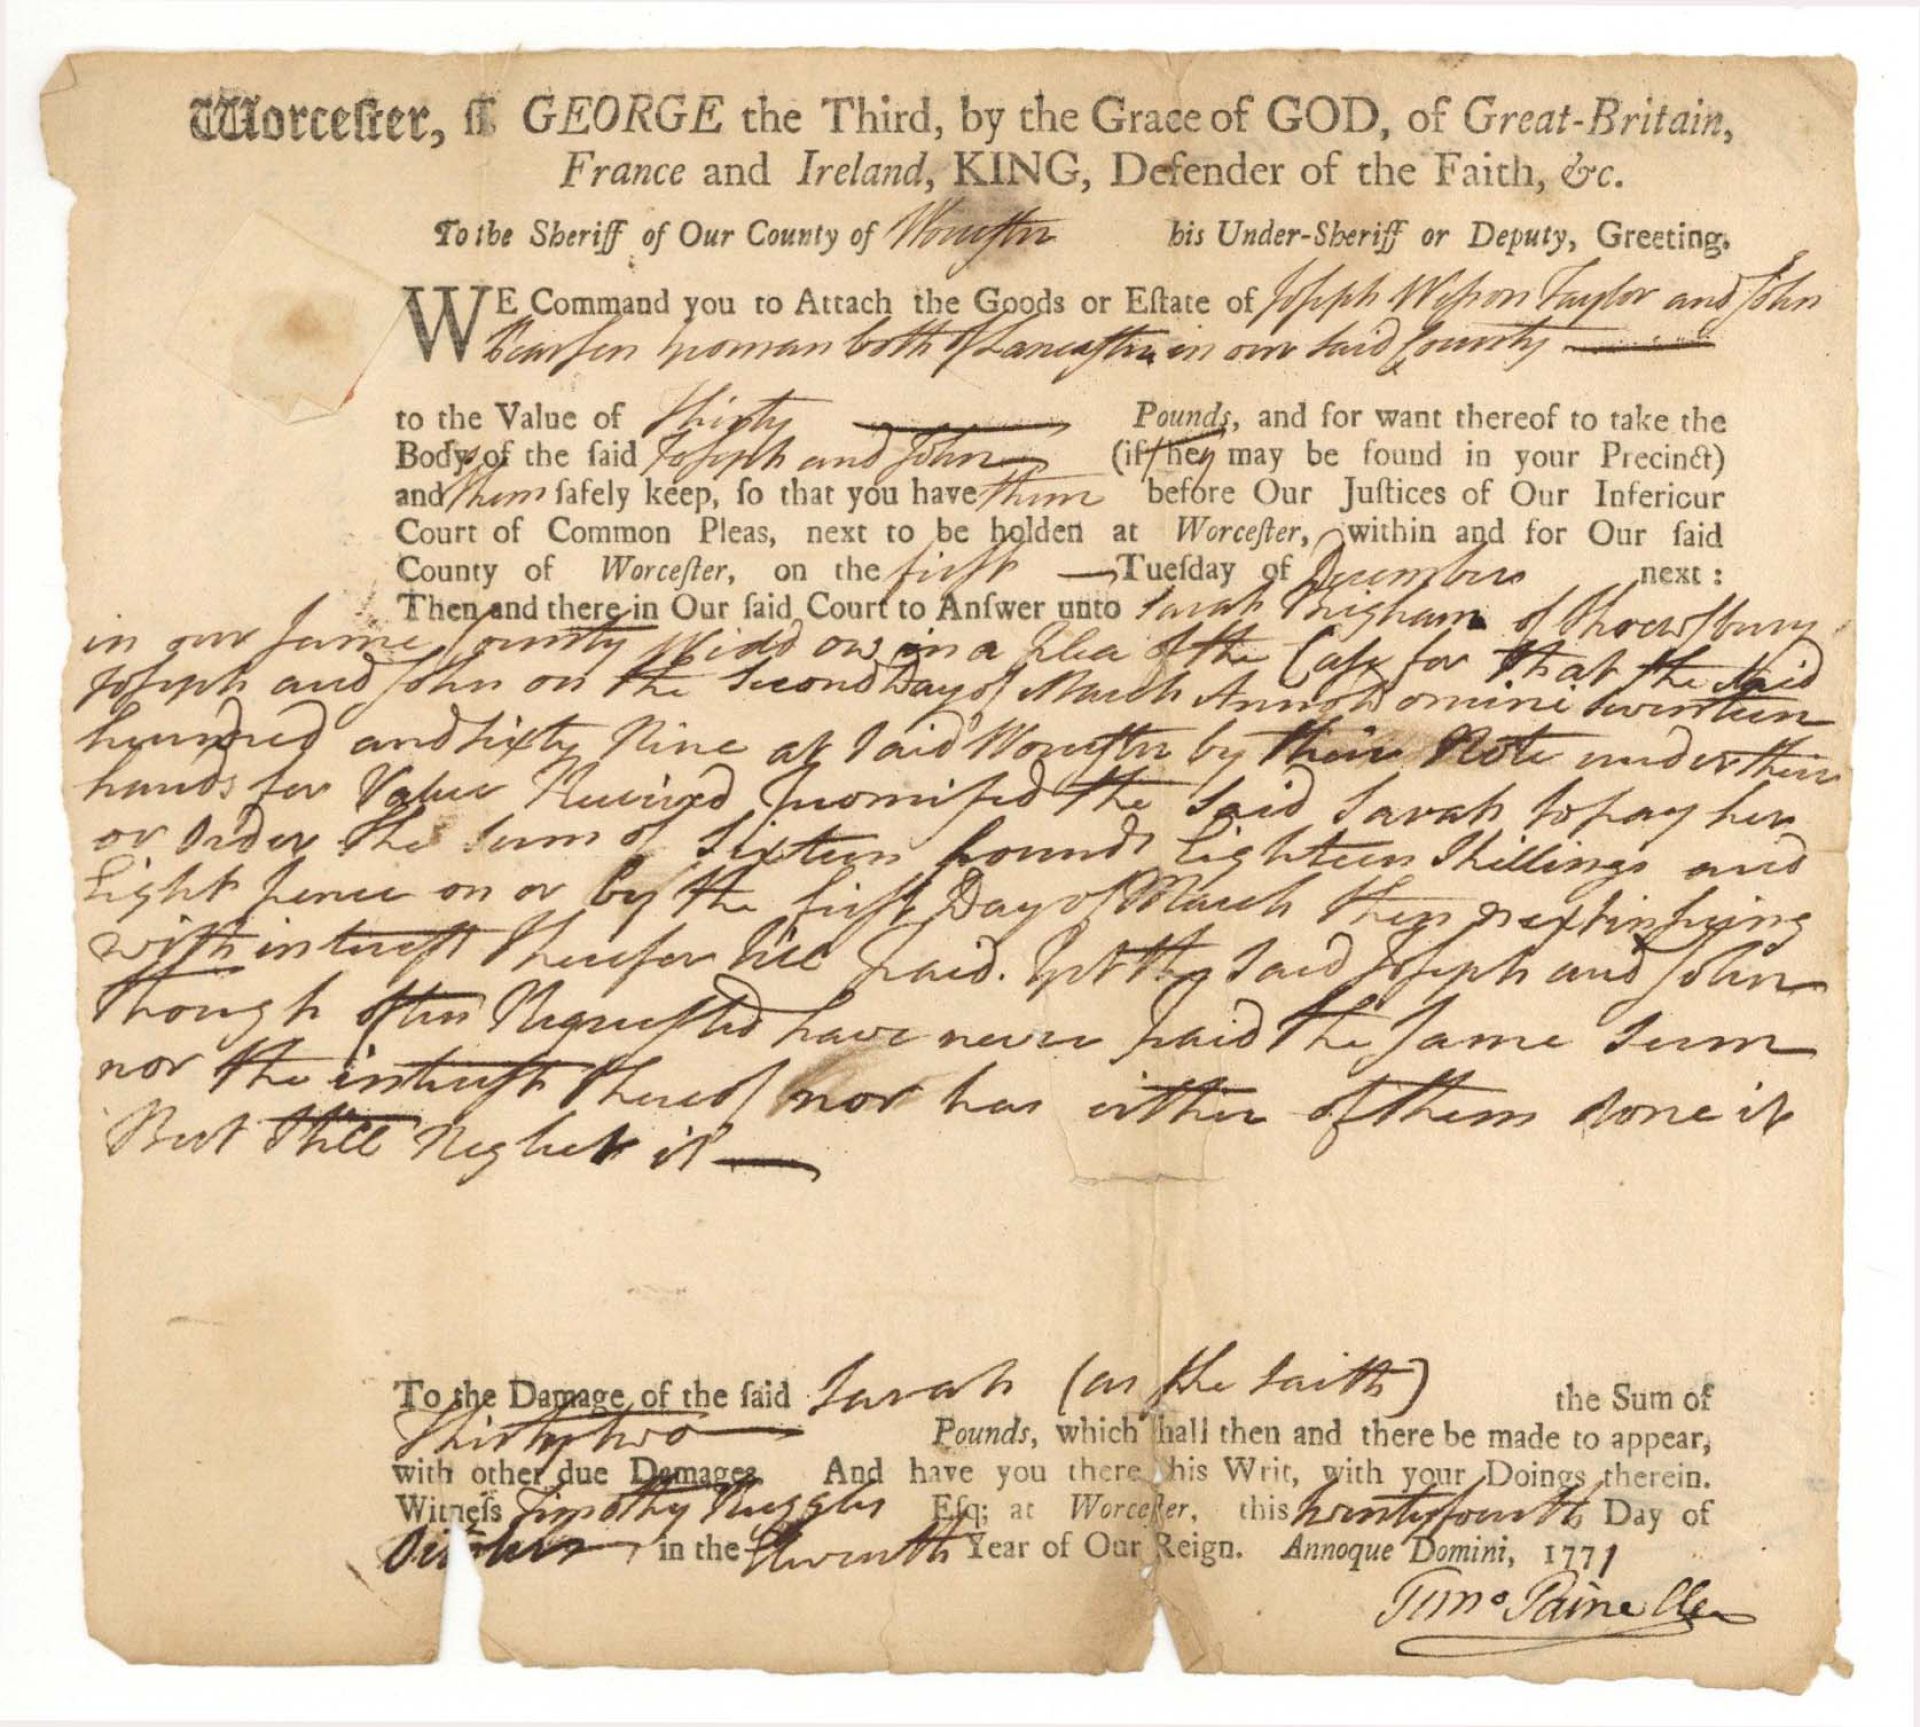 Worceſter, ſſ. GEORGE the Third, by the Grace of GOD, of Great-Britain,
France and Ireland, KING, Defender of the Faith, &c.
To the Sheriff of Our County of Worcester his Under-Sheriff or Deputy, Greeting.
WE Command you to Attach the Goods or Eſtate of Joseph Wesson Taylor and John
yeoman both of Lancaster in our said County
to the Value of Thirty Pounds, and for want thereof to take the
Bodys of the ſaid Joseph and John (if they may be found in your Precinct)
and them ſafely keep, ſo that you have them before Our Juſtices of Our Inferiour
Court of Common Pleas, next to be holden at Worceſter, within and for Our ſaid
County of Worceſter, on the first Tueſday of December next:
Then and there in Our ſaid Court to Anſwer unto Sarah Brigham of Shrewsbury
in our same County Widdow in a plea of the Case for that the said
Joseph and John on the second Day of March Anno Domini Seventeen
hundred and sixty Nine at said Worcester by their Note under their
hands for Value Received promised the said Sarah to pay her
or Order the sum of Sixteen pounds Eighteen Shillings and
Eight pence on or by the first Day of March then next insuing
with interest therefor till paid. Yet the said Joseph and John
though often Requested have never paid the same sum
nor the interest thereof nor has either of them done it
But still Neglect it
To the Damage of the ſaid Sarah (as she saith) the Sum of
Thirty two Pounds, which ſhall then and there be made to appear,
with other due Damages And have you there this Writ, with your Doings therein.
Witneſs Timothy Ruggles Eſq; at Worceſter, this twenty fourth Day of
October in the Eleventh Year of Our Reign. Annoque Domini, 1771
Timo Paine Cler